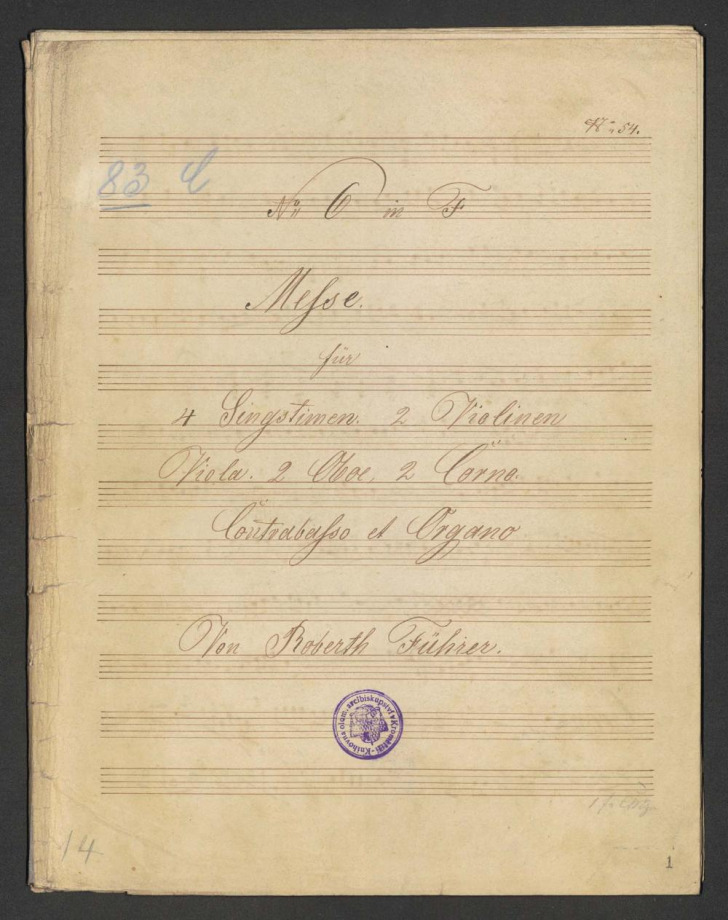 No 54.
83 C
No 6 in F
Messe.
für
4 Singstimen. 2 Violinen
Viola. 2 Oboe, 2 Corno.
Contrabasso et Organo
Von Roberth Führer.
Knihovna olom. arcibiskupství v Kroměříži
14
1